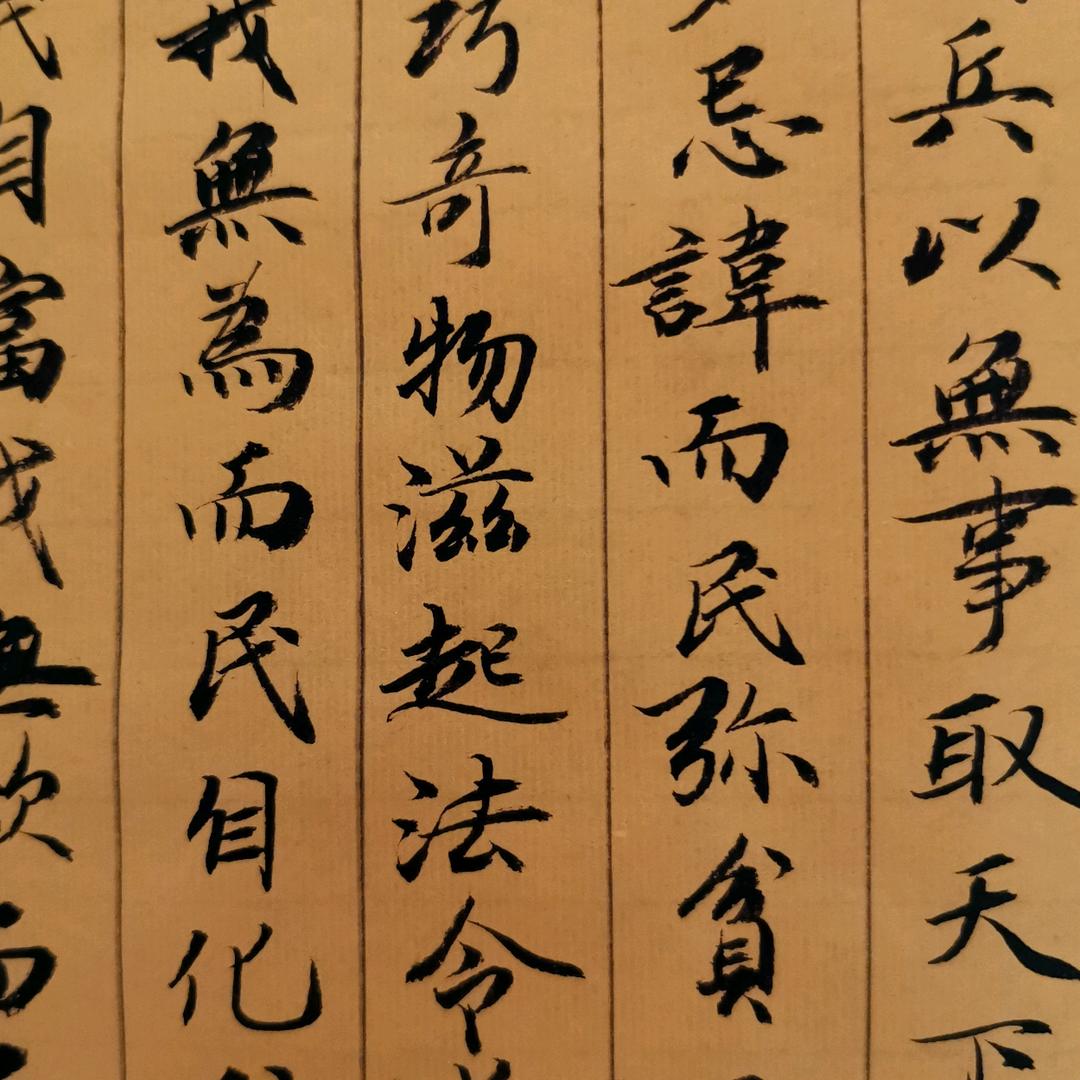 兵以無事取天下
忌諱而民弥貧
巧奇物滋起法令
我無為而民自化
自富我無欲而